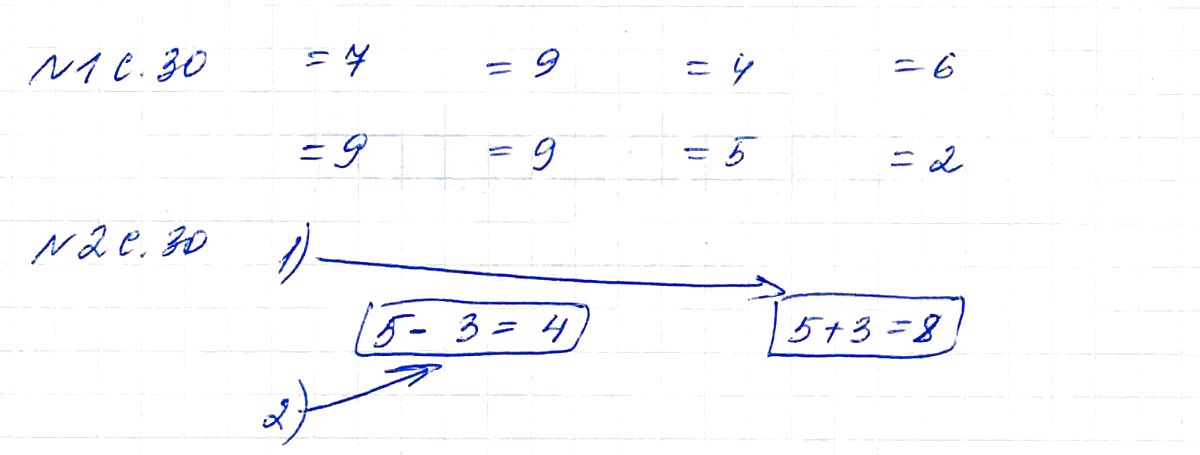 N1 с. 30 = 7 = 9 = 4 = 6
= 9 = 9 = 5 = 2
N2 с. 30 1)
5 - 3 = 4 5 + 3 = 8
2)